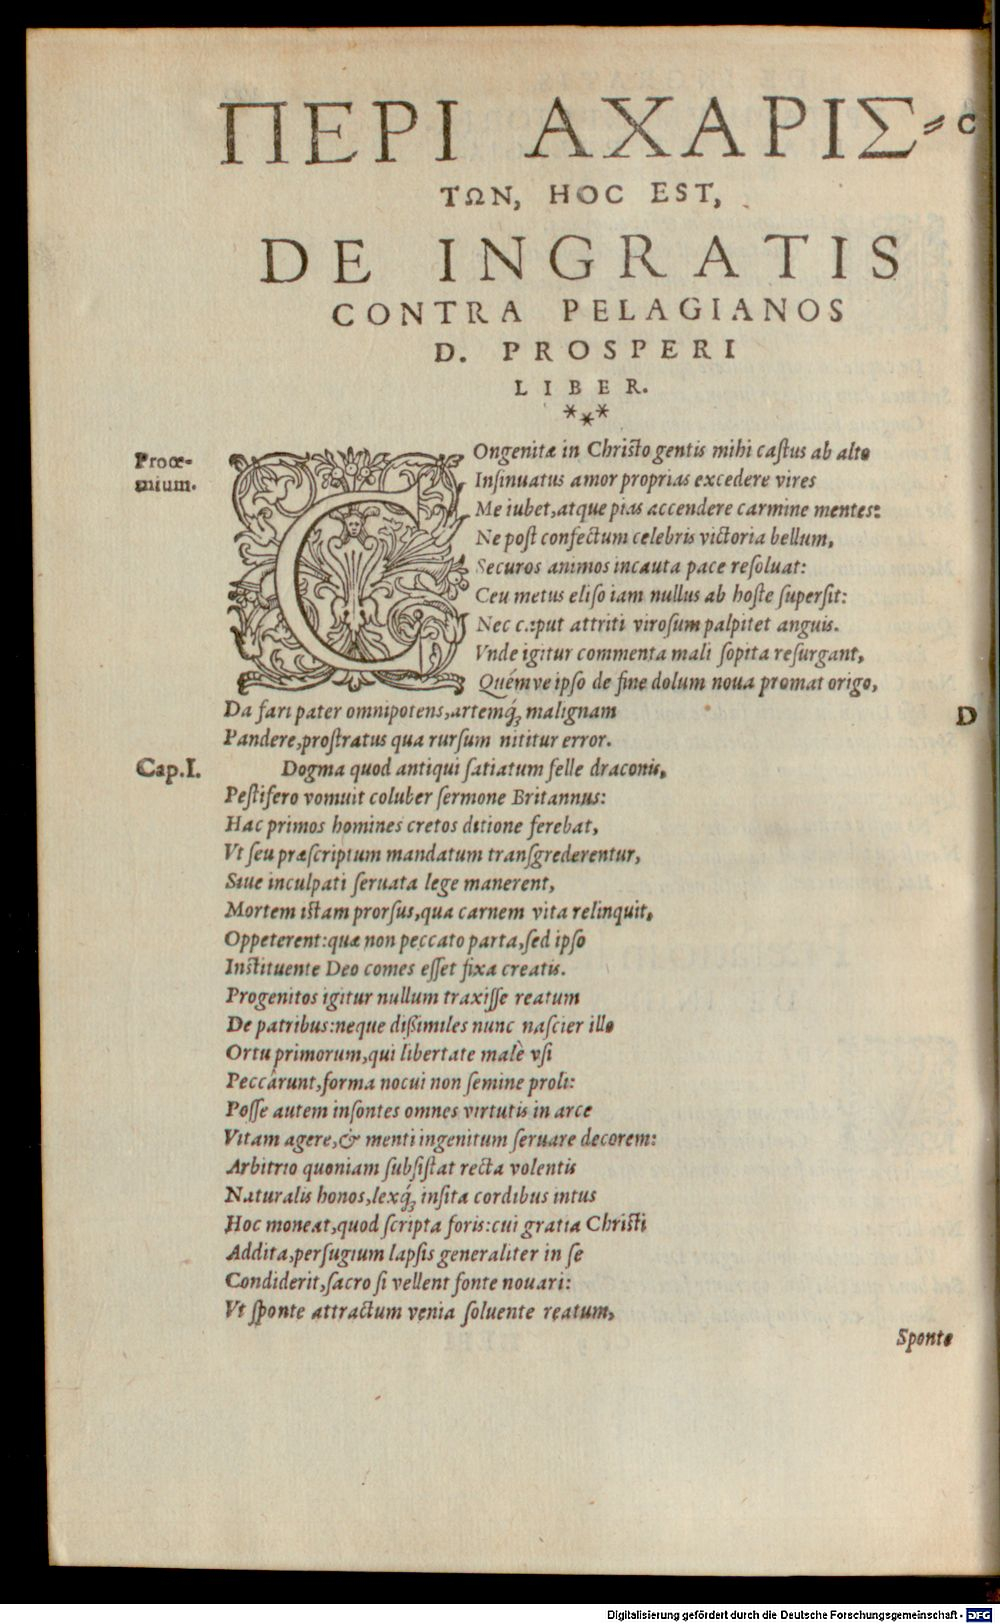 ΠΕΡΙ ΑΧΑΡΙΣ= C
ΤΩΝ, HOC EST,
DE INGRATIS
CONTRA PELAGIANOS
D. PROSPERI
LIBER.
***
Prooe-
mium.
COngenitæ in Christo gentis mihi castus ab alto
Insinuatus amor proprias excedere vires
Me iubet, atque pias accendere carmine mentes:
Ne post confectum celebris victoria bellum,
Securos animos incauta pace resoluat:
Ceu metus eliso iam nullus ab hoste supersit:
Nec caput attriti virosum palpitet anguis.
Vnde igitur commenta mali sopita resurgant,
Quémve ipso de fine dolum noua promat origo,
Da fari pater omnipotens, artemq́; malignam D
Pandere, prostratus qua rursum nititur error.
Cap.I. Dogma quod antiqui satiatum felle draconis,
Pestifero vomuit coluber sermone Britannus:
Hac primos homines cretos ditione ferebat,
Vt seu præscriptum mandatum transgrederentur,
Siue inculpati seruata lege manerent,
Mortem istam prorsus, qua carnem vita relinquit,
Oppeterent: quæ non peccato parta, sed ipso
Instituente Deo comes esset fixa creatis.
Progenitos igitur nullum traxisse reatum
De patribus: neque dißimiles nunc nascier illo
Ortu primorum, qui libertate malè vsi
Peccârunt, forma nocui non semine proli:
Posse autem insontes omnes virtutis in arce
Vitam agere, & menti ingenitum seruare decorem:
Arbitrio quoniam subsistat recta volentis
Naturalis honos, lexq́; insita cordibus intus
Hoc moneat, quod scripta foris: cui gratia Christi
Addita, perfugium lapsis generaliter in se
Condiderit, sacro si vellent fonte nouari:
Vt sponte attractum venia soluente reatum,
Sponte
Digitalisierung gefördert durch die Deutsche Forschungsgemeinschaft - DFG